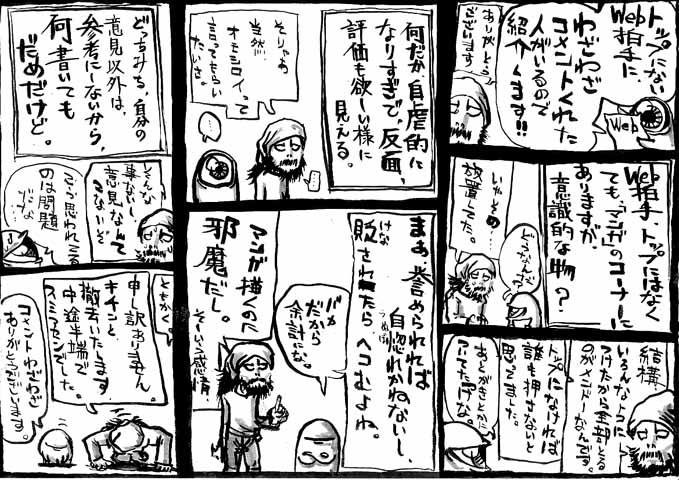 トップにない
Web拍手に、
わざわざ
コメントくれた
人がいるので
紹介します!!
ありがとう
ございます
Web
Web拍手 トップにはなく
ても、「マンガ」のコーナーに
ありますが、
意識的な物?
どうなんだ?
いやその…
放置してた。
結構
いろんなトコに
つけたから全部とる
のがメンドーなんです。
トップになければ
誰も押さないと
思ってました。
あとがきとかに
ついてたけな。
何だか、自虐的に
なりすぎで、反面、
評価も欲しい様に
見える。
そりゃあ
当然
オモシロイって
言ってもらい
たいさ。
…
まあ、誉められれば
自惚れかねないし、
うぬぼ
貶されたらヘコむよね。
けな
バカ
だから
余計にな。
マンガ描くのに
邪魔だし。
そーいう感情
どっちみち、自分の
意見以外は、
参考にしないから、
何書いても
だめだけど。
いそんな
事ないし、
意見なんて
こないぞ
そう思われてる
のは問題
だな
ともかく。
申し訳ありません。
キチンと
撤去いたします
中途半端で
スミマセンでした。
コメントわざわざ
ありがとうございます。